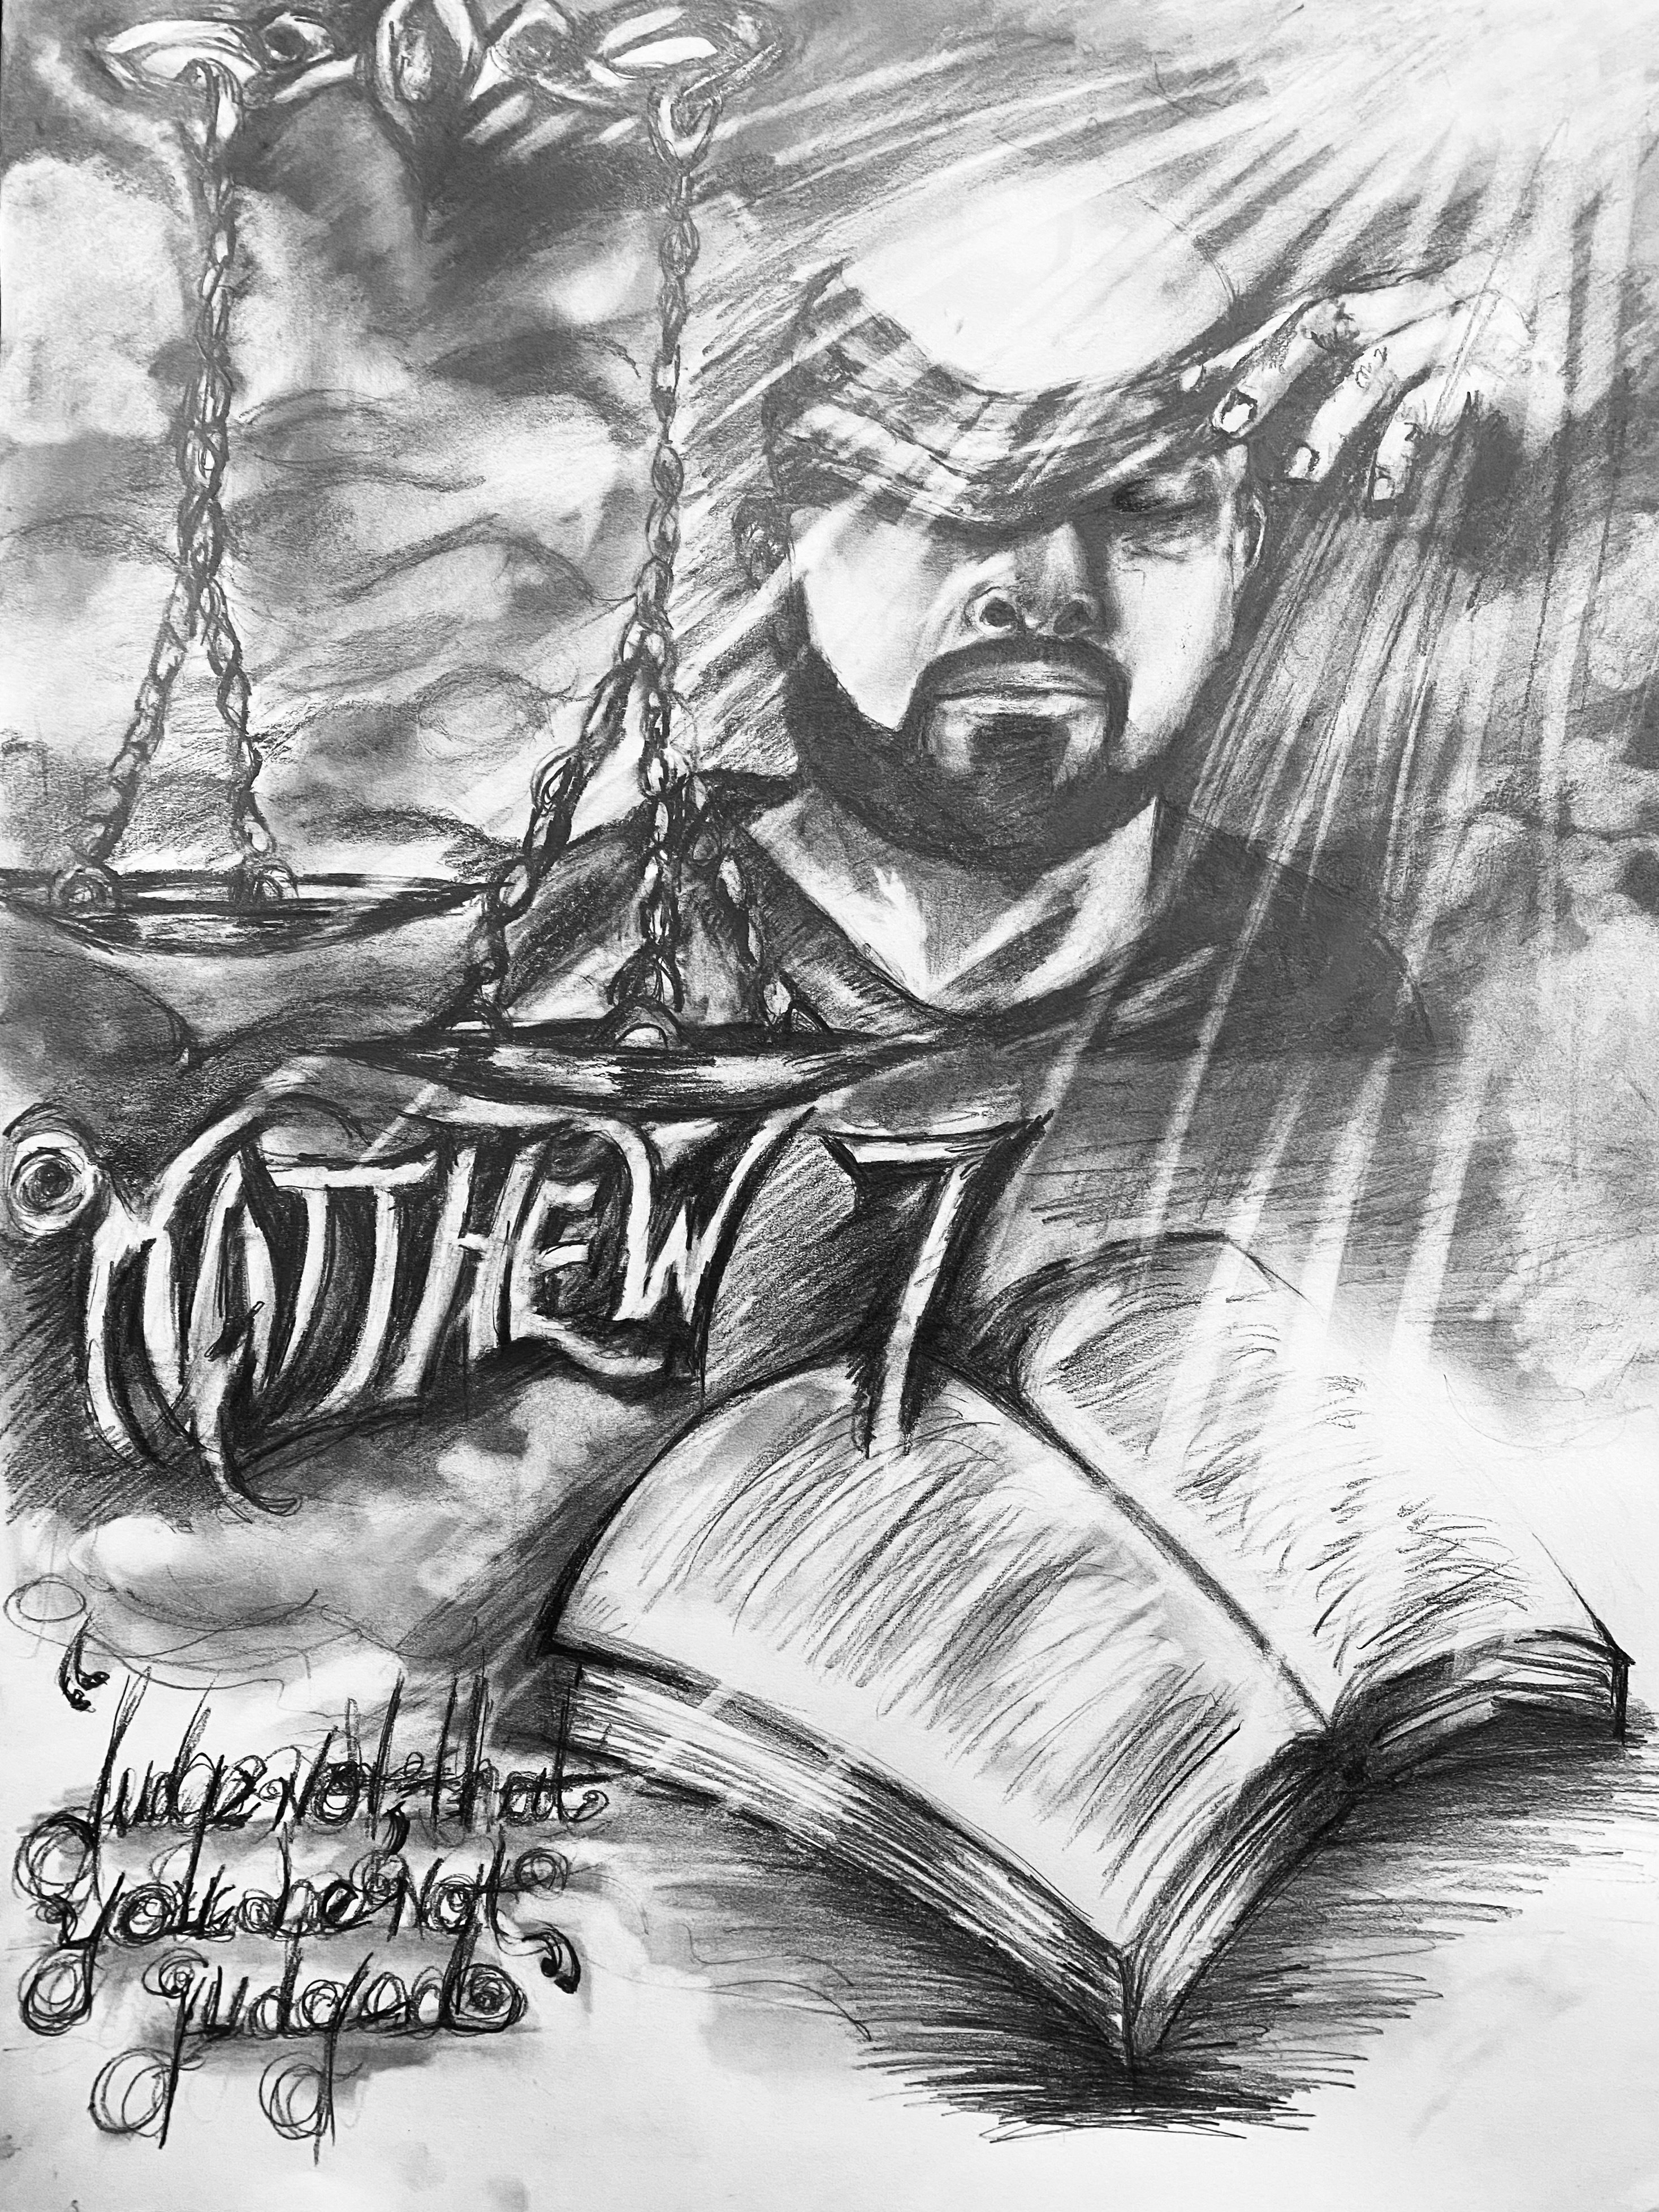 MATTHEW 7
"Judge Not, that
you be Not
judged"